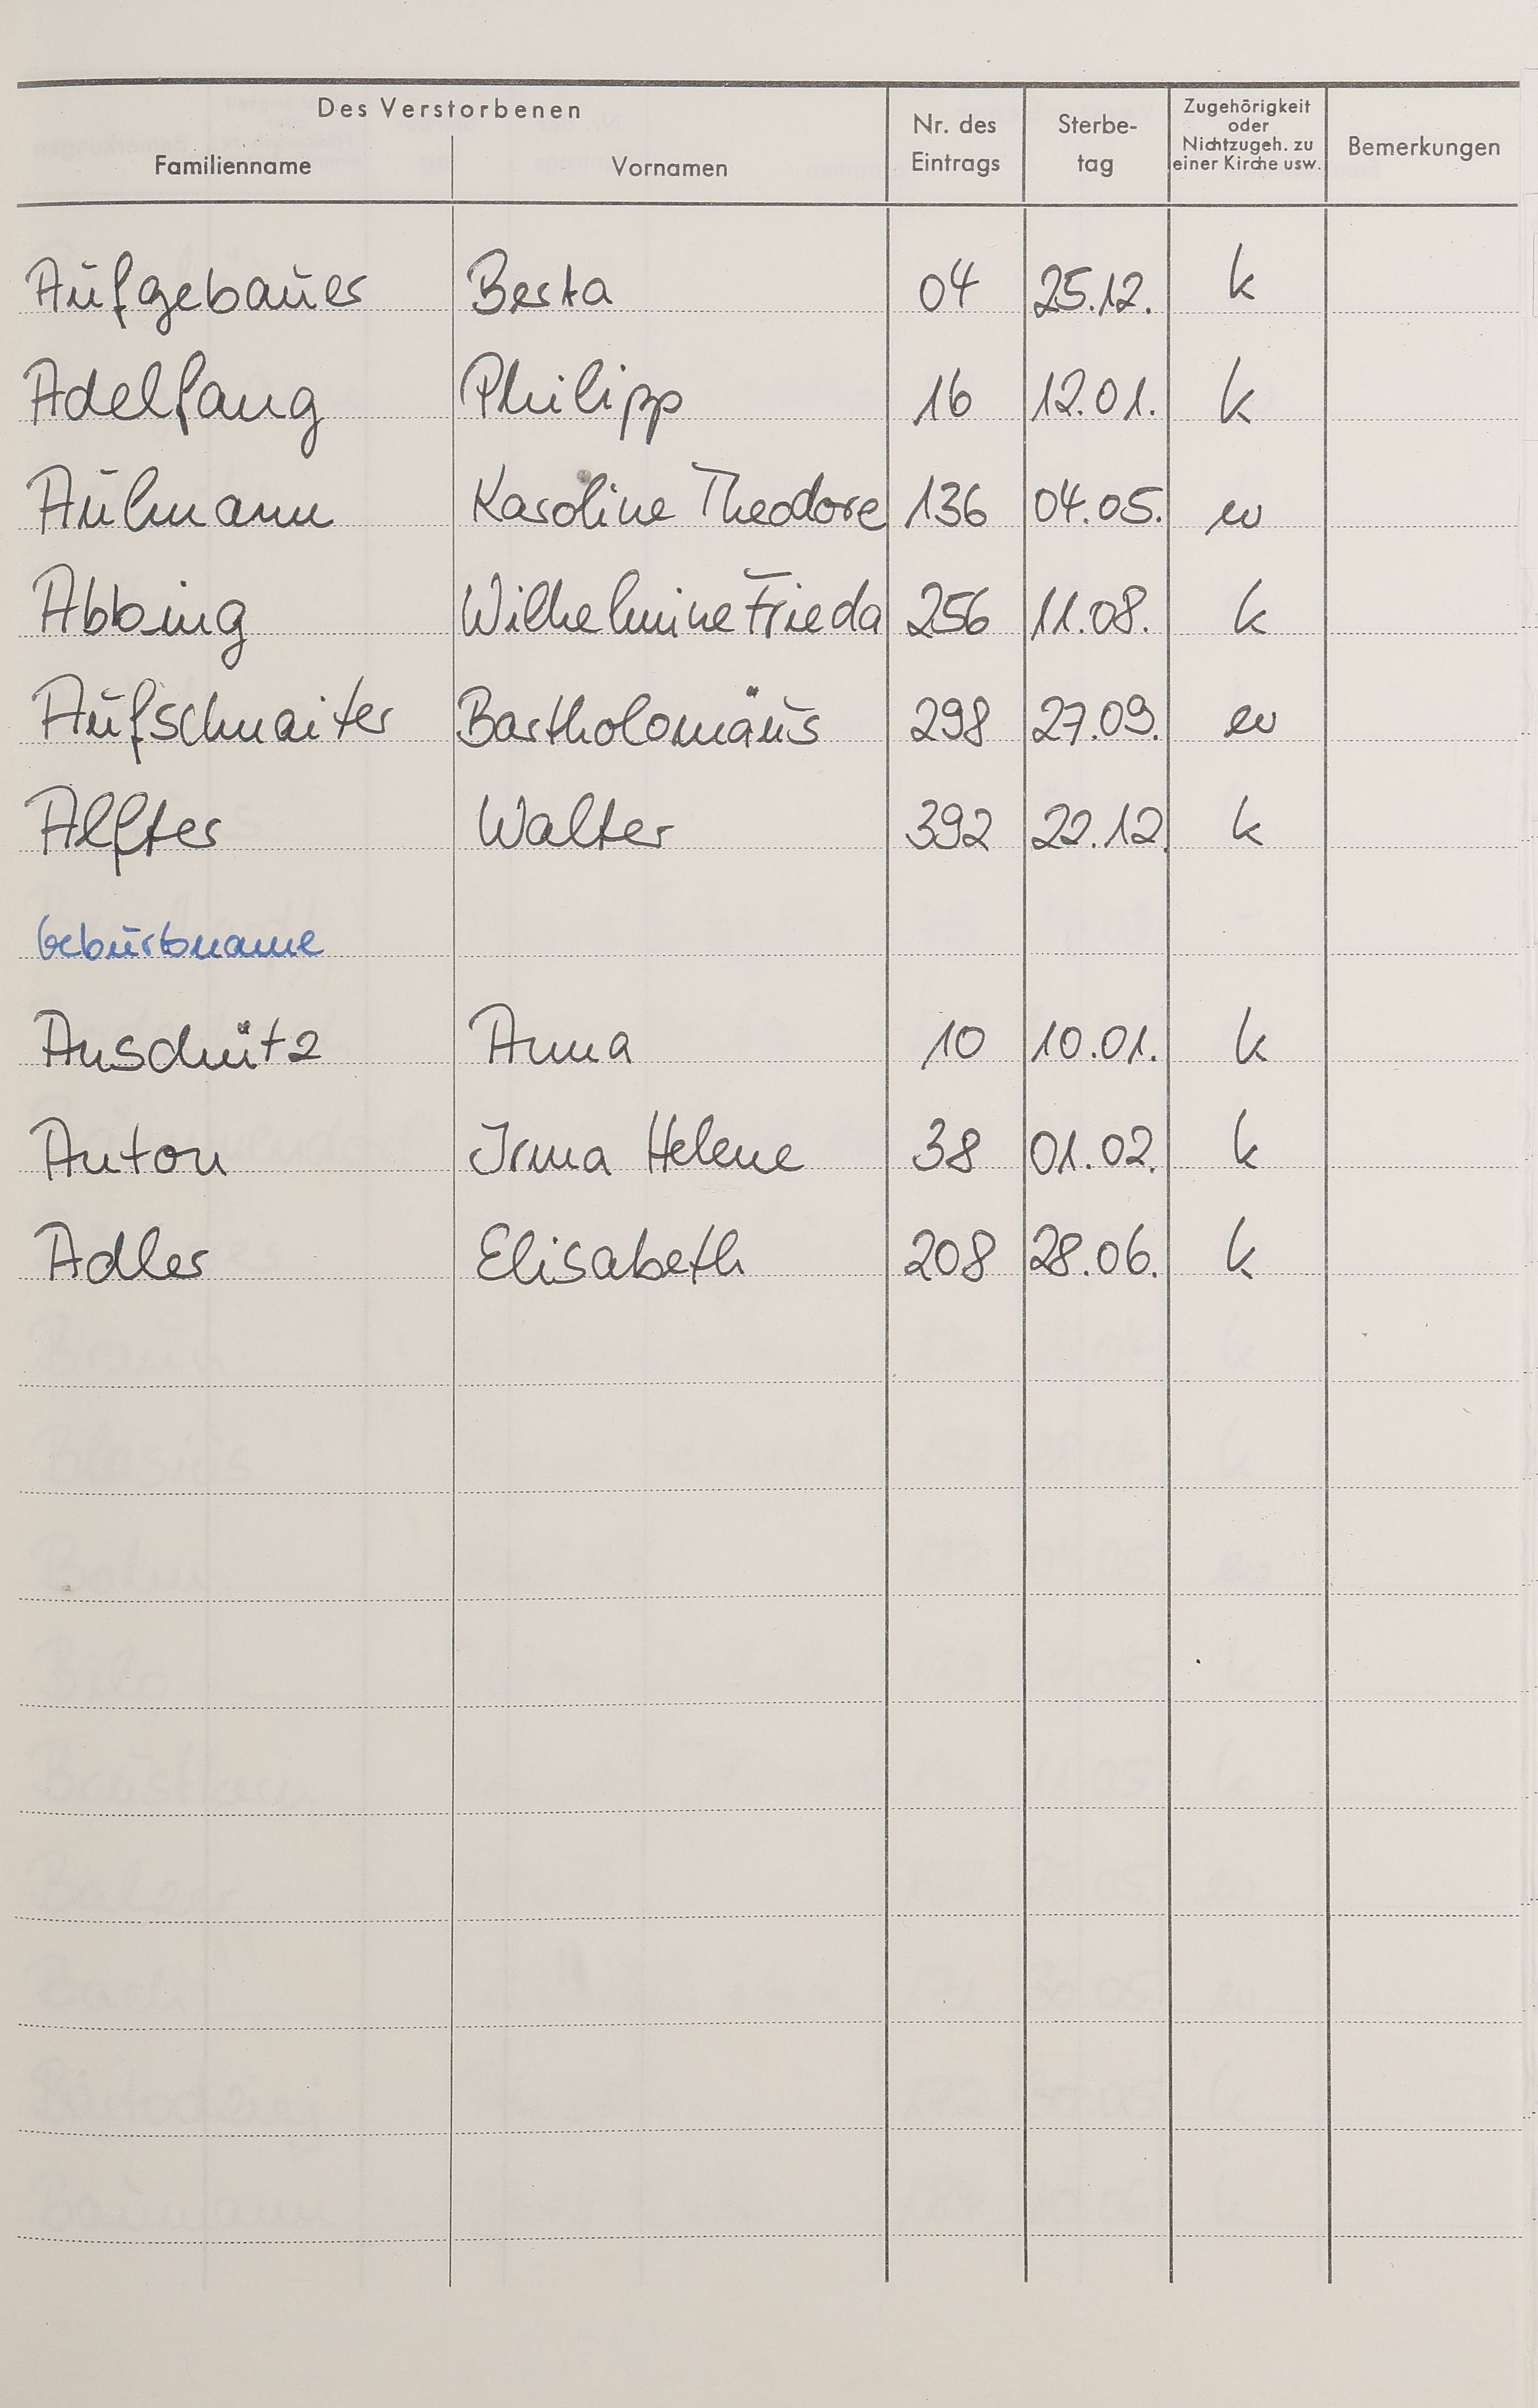 Des Verstorbenen
Familienname Vornamen Nr. des Eintrags Sterbe- tag Zugehörigkeit oder Nichtzugeh. zu einer Kirche usw. Bemerkungen
Aufgebauer Berta 04 25.12. k
Adelfang Philipp 16 12.01. k
Aulmann Karoline Theodore 136 04.05. ev
Abbing Wilhelmine Frieda 256 11.08. k
Aufschnaiter Bartholomäus 298 27.09. ev
Alfter Walter 392 22.12. k
Geburtsname
Anschütz Anna 10 10.01. k
Anton Irma Helene 38 01.02. k
Adler Elisabeth 208 28.06. k